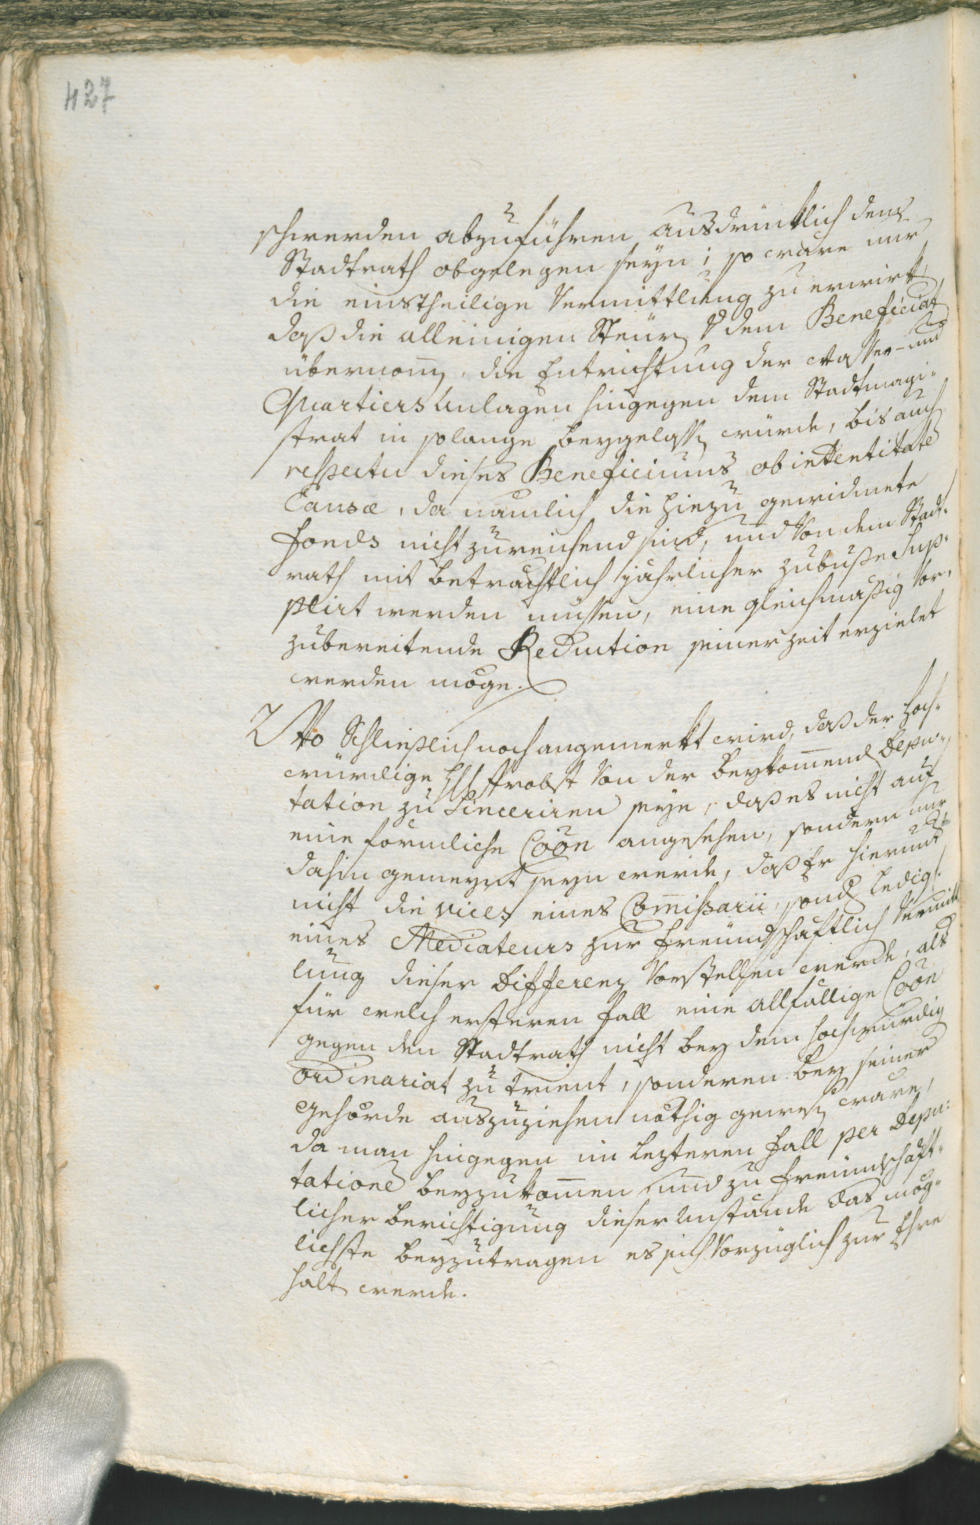 427
schwerden abzuführen ausdrüklich dem
Stadtrath obgelegen seyn; so wäre nur
die einstheilige Vermittlung zu erwirk
daß die alleinigen Steur dem Beneficiat
übernom̅, die Entrichtung der und
Quartiers Anlagen hingegen dem Stadtmagi-
strat in solange beygelass würde, bis auch
respectu dieses Beneficiums ob identitate
Causæ, da nämlich die hiezu gewidmete
Fonds nicht zureichend sind, und von dem Stadt-
rath mit beträchtlich jährlicher zubuße Sup-
plirt werden müssen, eine gleichmäßig vor-
zubereitende Reduction seiner zeit erzielet
werden möge.
2to Schließlich noch angemerkt wird, daß der hoch-
würdige H Probst von der beykom̅end Depu-
tation zu Sinceriren seye, daß es nicht auf
eine förmliche Coon angesehen, sondern nur
dahin gemeynt seyn werde, daß Er hierunt
nicht die vices eines Com̅issarii, sond ledigl.
eines Mediateurs zur freundschaftlich Vermitt
lung dieser Differenz vorstellen werde, als
für welch ersteren fall eine allfällige Coon
gegen den Stadtrath nicht bey dem hochwürdig
Ordinariat zu Trient, sonderen bey seiner
Gehörde auszuziehen nöthig gewes wäre,
da man hingegen im lezteren fall per Depu-
tatione beyzukom̅en und zu freundschaft-
licher berichtigung dieser Umstände das mög-
lichste beyzutragen es sich vorzüglich zur Ehre
halt werde.